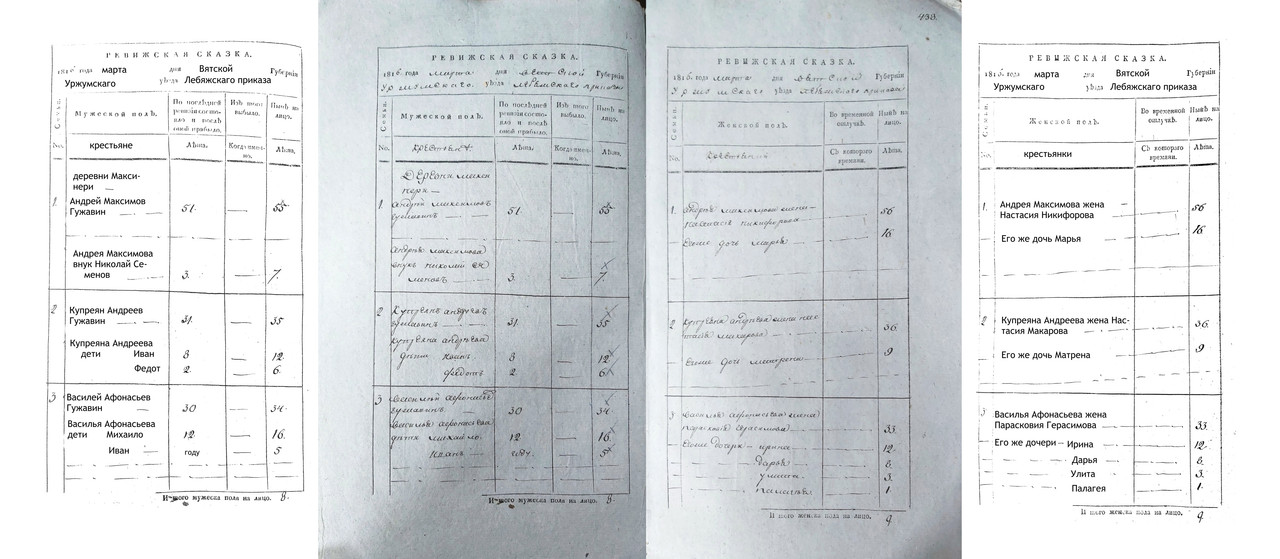 РЕВИЖСКАЯ СКАЗКА.
1816 года марта дня Вятской Губерніи
Уржумскаго уѣзда Лебяжского приказа
Семьи.
Мужеской полъ.
По послѣдней ревизіи состояло и послѣ оной прибыло.
Изъ того выбыло.
Нынѣ на лицо.
No. крестьяне Лѣта. Когда имянно. Лѣта.
деревни Макси-
нери —
1. Андрей Максимов
Гужавин 51. — 55
Андрея Максимова
внук Николай Се-
менов 3. — 7.
2 Купреян Андреев
Гужавин 31. — 35
Купреяна Андреева
дети Иван 8 — 12.
Федот 2. — 6.
3 Василей Афонасьев
Гужавин — 30 — 34.
Василья Афонасьева
дети Михайло 12 — 16.
Иван году — 5
Итого мужеска пола на лицо. 8.
РЕВИЖСКАЯ СКАЗКА.
1816 года марта дня вятской Губерніи
Уржумскаго уѣзда
Семьи.
Мужеской полъ.
По послѣдней ревизіи состояло и послѣ оной прибыло.
Изъ того выбыло.
Нынѣ на лицо.
No. Лѣта. Когда имянно. Лѣта.
Деревни макси
нери —
1 андрей максимовъ
гужавинъ 51. — 55
андрея максимова
внукъ николай се
меновъ 3. — 7.
2 Купреянъ андреевъ
гужавинъ 31. — 35
купреяна андреева
дети иванъ 8 — 12
федотъ 2. — 6
3 василей афонасьевъ
гужавинъ 30 — 34
василья афонасьева
дети михайло. 12 — 16
иванъ году. — 5
Итого мужеска пола на лицо. 8.
433.
РЕВИЖСКАЯ СКАЗКА.
1816 года марта дня вятской Губерніи
Уржумскаго уѣзда
Семьи.
Женской полъ.
Во временной отлучкѣ.
Нынѣ на лицо.
No. Съ котораго времени. Лѣта.
1. андрея максимова жена
настасья никифорова 56
Ево же дочь марья 16.
2 купреяна андреева жена нас
тасья макарова 36.
Ево же дочь матрена 9
3 василья афонасьева жена
парасковья герасимова 33.
Ево же дочери — ирина 12.
дарья 8.
улита 3.
палагея 1.
Итого женска пола на лицо. 9.
РЕВИЖСКАЯ СКАЗКА.
1816 года марта дня Вятской Губерніи
Уржумскаго уѣзда Лебяжского приказа
Семьи.
Женской полъ.
Во временной отлучкѣ.
Нынѣ на лицо.
No. крестьянки Съ котораго времени. Лѣта.
1. Андрея Максимова жена
Настасия Никифорова 56
Его же дочь Марья 16.
2 Купреяна Андреева жена Нас-
тасия Макарова 36.
Его же дочь Матрена 9
3 Василья Афонасьева жена
Парасковия Герасимова 33.
Его же дочери — Ирина 12.
Дарья 8.
Улита 3.
Палагея 1.
Итого женска пола на лицо. 9.